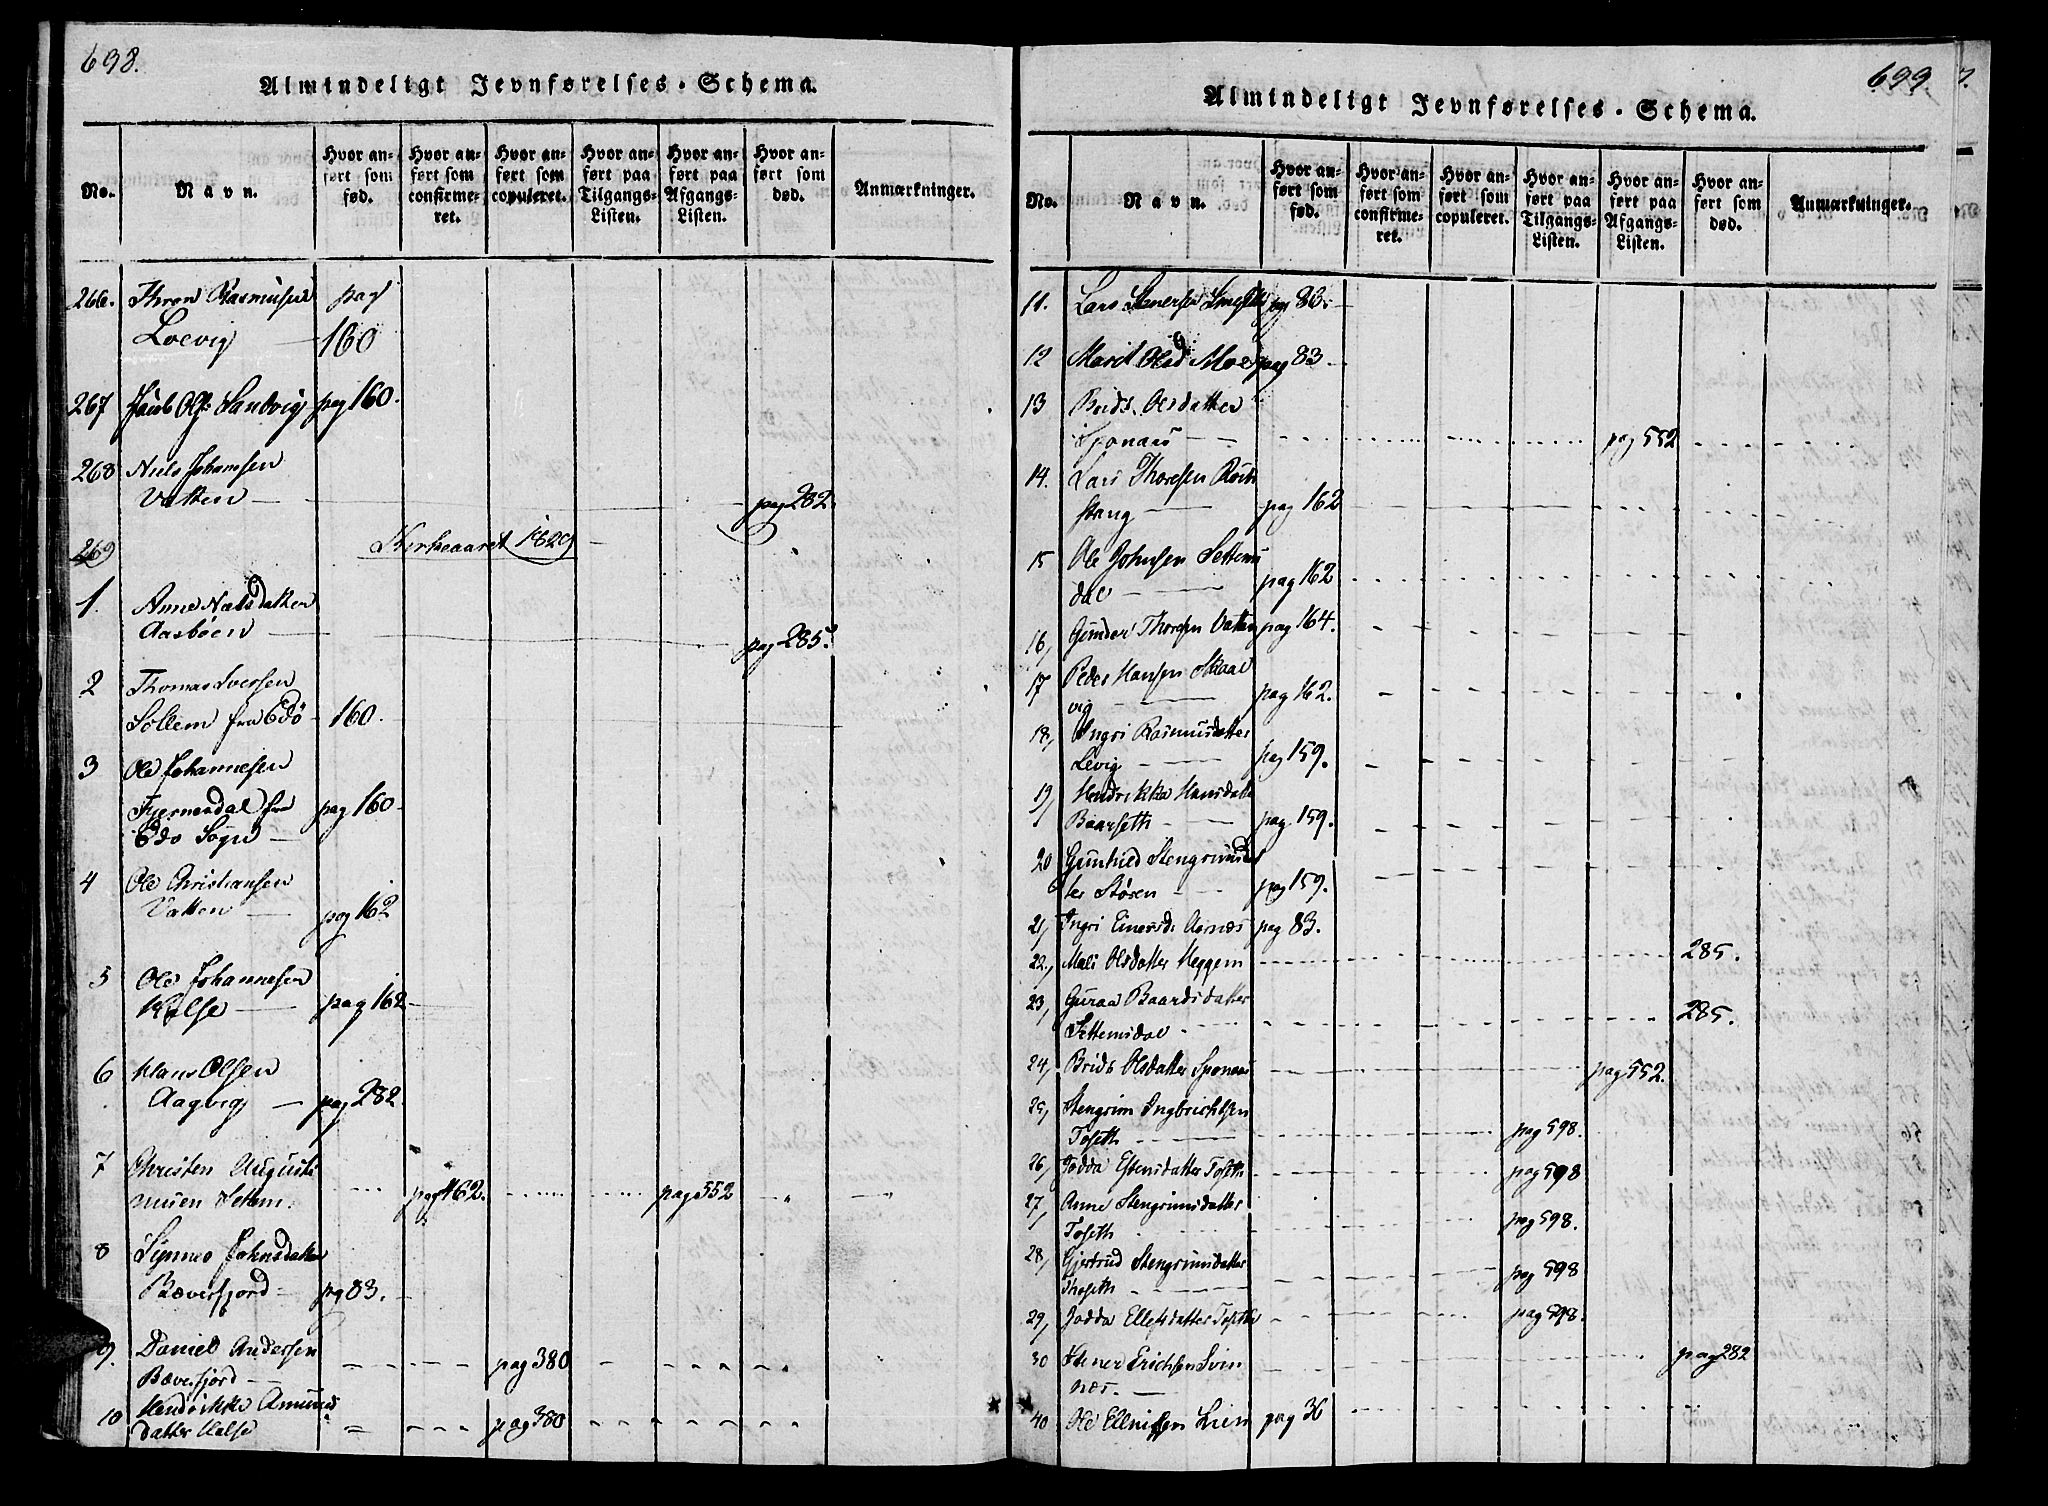 698.
Almindeligt Jevnførelses-Schema.
No.
Navn.
Hvor anført som fød.
Hvor anført som confirmeret.
Hvor anført som copuleret.
Hvor anført paa Tilgangs-Listen.
Hvor anført paa Afgangs-Listen.
Hvor anført som død.
Anmærkninger.
266. Thron Rasmusen pag
Loevig 160
267 Jacob Ols: Sandvig pag 160.
268 Niels Johansen
Vatten pag 282.
269 Kirkeaaret 1829
1. Anne Nielsdatter
Aasbøen pag 285.
2 Thomas Iversen
Sollem fra Edö 160.
3 Ole Johannesen
fra pag 160
Edö Sogn
4 Ole Christiansen
Vatten pag 162
5 Ole Johannesen
Halse pag 162
6 Klaus Olsen
Aagvig pag 282.
7 Christen Augusti
nusen Settem. pag 162. pag 552
8 Synnev Johnsdatter
Bæverfjord pag 83.
9. Daniel Andersen
Bæverfjord pag 380
10 Hendrikke Amunds
datter Halse pag 380
699
Almindeligt Jevnførelses-Schema.
No.
Navn.
Hvor anført som fød.
Hvor anført som confirmeret.
Hvor anført som copuleret.
Hvor anført paa Tilgangs-Listen.
Hvor anført paa Afgangs-Listen.
Hvor anført som død.
Anmærkninger.
11. Lars Stenersen pag 83.
12 Marit Olsd Moe pag 83
13 Brids. Olsdatter
Sponæs pag 552
14. Lars Thoresen
stang pag 162
15 Ole Johnsen Settems
dal pag 162
16, Gunder Thoresen Vatten pag 164.
17 Peder Hansen Skaal
vig pag 162.
18, Ingri Rasmusdatter
Levig pag 159.
19, Hendrikka Hansdatter
Baarseth pag 159.
20 Gunhild Stengrimsdat
ter Støren pag 159.
21, Ingri Einersd: Aarnæs pag 83.
22, Mali Olsdatter Heggem 285.
23, Guraa Baardsdatter
Settemsdal 285.
24, Brids Olsdatter Sponæs pag 552.
25, Stengrim Ingbrichtsen
Toseth pag 598.
26, Jodda Estensdatter Toseth pag 598
27, Anne Stengrimsdatter
Toseth pag 598.
28, Gjertrud Stengrimsdatter
Thoseth pag 598
29, Jodda Ellefsdatter Toseth pag 598.
30 Stener Erichsen Svin
næs. pag 282
40 Ole Lien pag 36